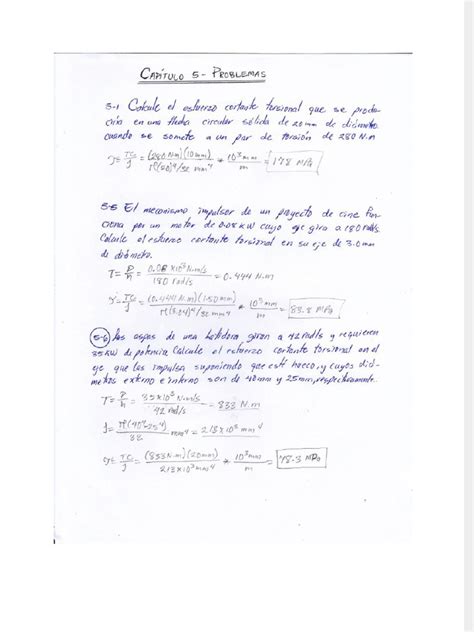 CAPÍTULO 5 - PROBLEMAS
5-1 Calcule el esfuerzo cortante torsional que se produ-
ciría en una flecha circular sólida de 20 mm de diámetro
cuando se somete a un par de torsión de 280 N.m
τ = Tc/J = (280 N.m)(10mm)/π(20)⁴/32 mm⁴ * 10³mm/m = 178 MPa
5-5 El mecanismo impulsor de un proyecto de cine fun-
ciona por un motor de 0.08 KW cuyo eje gira a 180 rad/s.
Calcule el esfuerzo cortante torsional en su eje de 3.0mm
de diámetro.
T = P/n = 0.08 x10³ N.m/s / 180 rad/s = 0.444 N.m
τ = Tc/J = (0.444 N.m)(1.50mm)/π(3.0)⁴/32 mm⁴ * 10³mm/m = 83.8 MPa
5-6 Las aspas de una batidora giran a 42 rad/s y requieren
35 KW de potencia. Calcule el esfuerzo cortante torsional en el
eje que las impulsa suponiendo que esté hueco, y cuyos diá-
metros externo e interno son de 40mm y 25mm, respectivamente.
T = P/n = 35x10³ N.m/s / 42 rad/s = 833 N.m
J = π(40⁴-25⁴)/32 mm⁴ = 213x10³ mm⁴
τ = Tc/J = (833 N.m)(20mm)/213x10³mm⁴ * 10³mm/m = 78.3 MPa